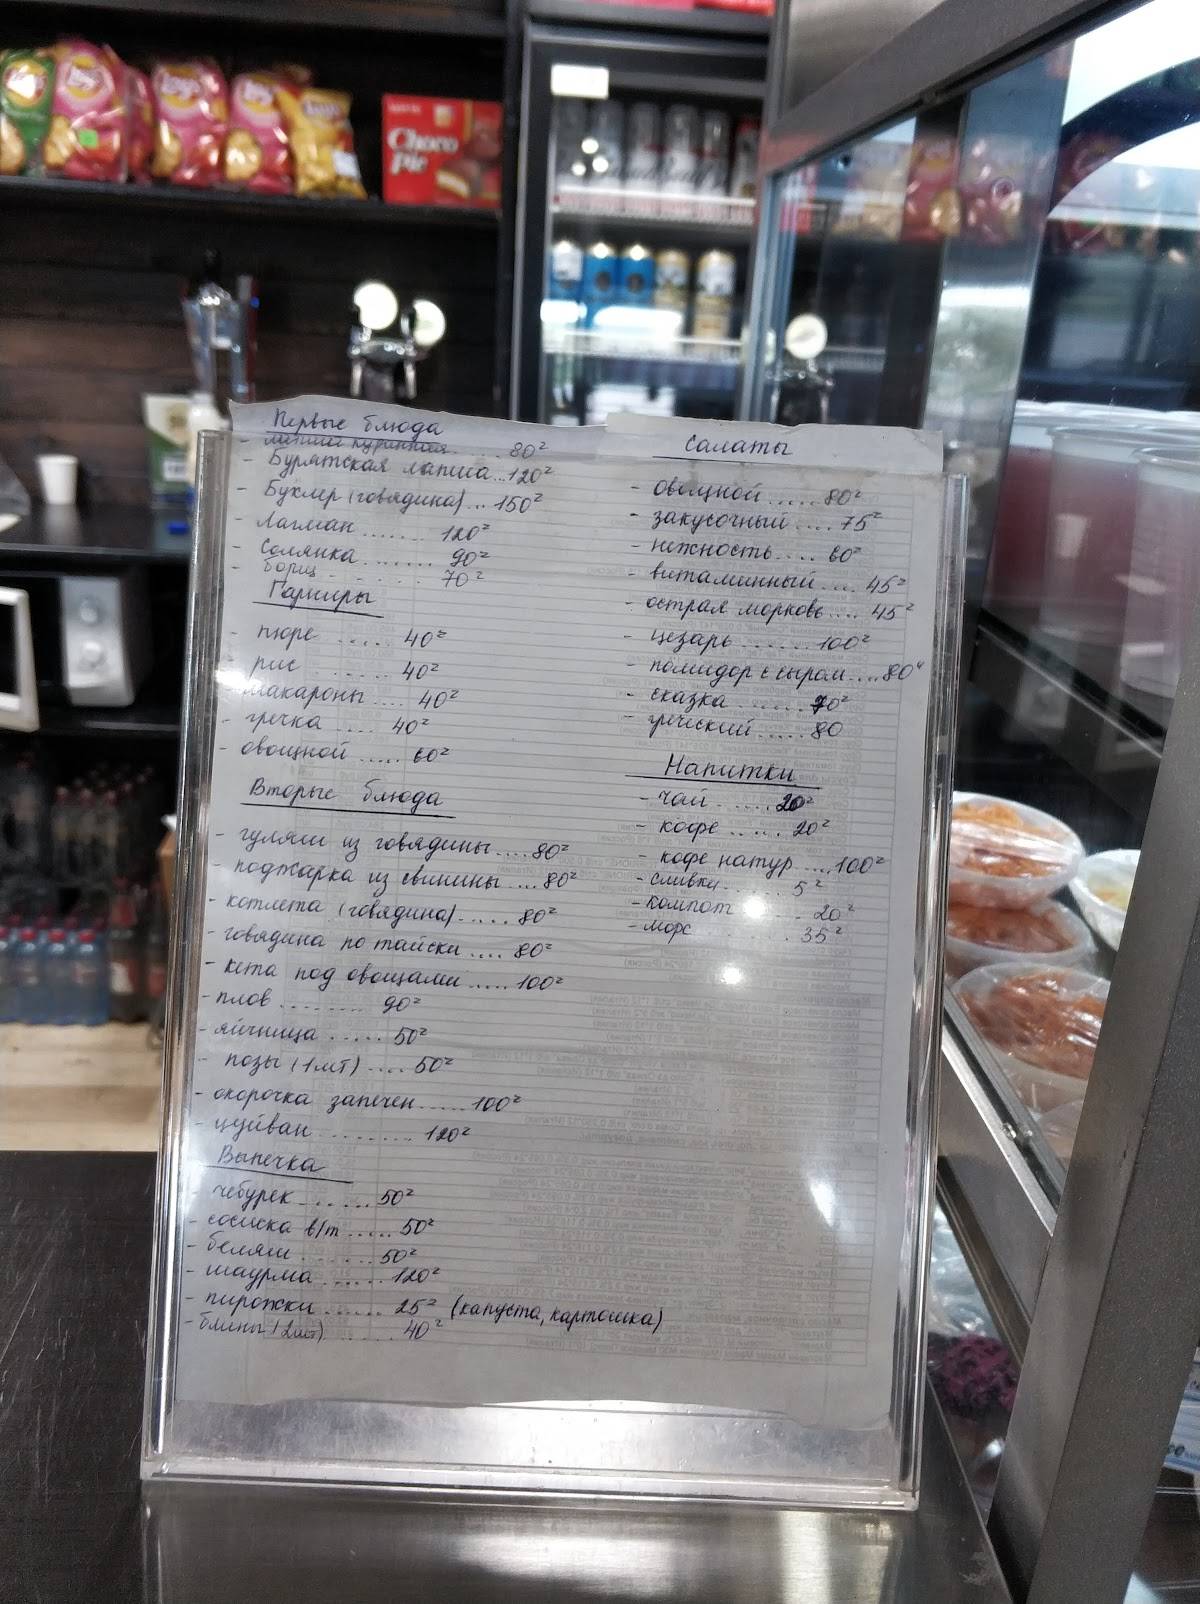 Lay's
Choco
Pie
Первые блюда
- лапша куриная..... 80²
- Бурятская лапша...120²
- Бухлер (говядина)...150²
- Лагман....... 120²
- Солянка....... 90²
- Борщ....... 70²
Гарниры
- пюре ..... 40²
- рис ..... 40²
- макароны .... 40²
- гречка .... 40²
- овощной ..... 60²
Вторые блюда
- гуляш из говядины....80²
- поджарка из свинины ...80²
- котлета (говядина)..... 80²
- говядина по тайски .... 80²
- кета под овощами.....100²
- плов ........ 90²
- яичница ..... 50²
- позы (1шт).... 50²
- окорочка запечен.....100²
- цуйван ........ 120²
Выпечка
- чебурек.......50²
- сосиска в/т ..... 50²
- беляш ....... 50²
- шаурма ...... 120²
- пирожки ...... 25² (капуста, картошка)
- блины (2шт) ...... 40²
Салаты
- овощной ..... 80²
- закусочный .... 75²
- нежность.... 60²
- витаминный.... 45²
- острая морковь.... 45²
- цезарь .......100²
- помидор с сыром....80²
- сказка ....... 70²
- греческий..... 80
Напитки
- чай ..... 20²
- кофе ..... 20²
- кофе натур ....100²
- сливки..... 5²
- компот ..... 20²
- морс ....... 35²